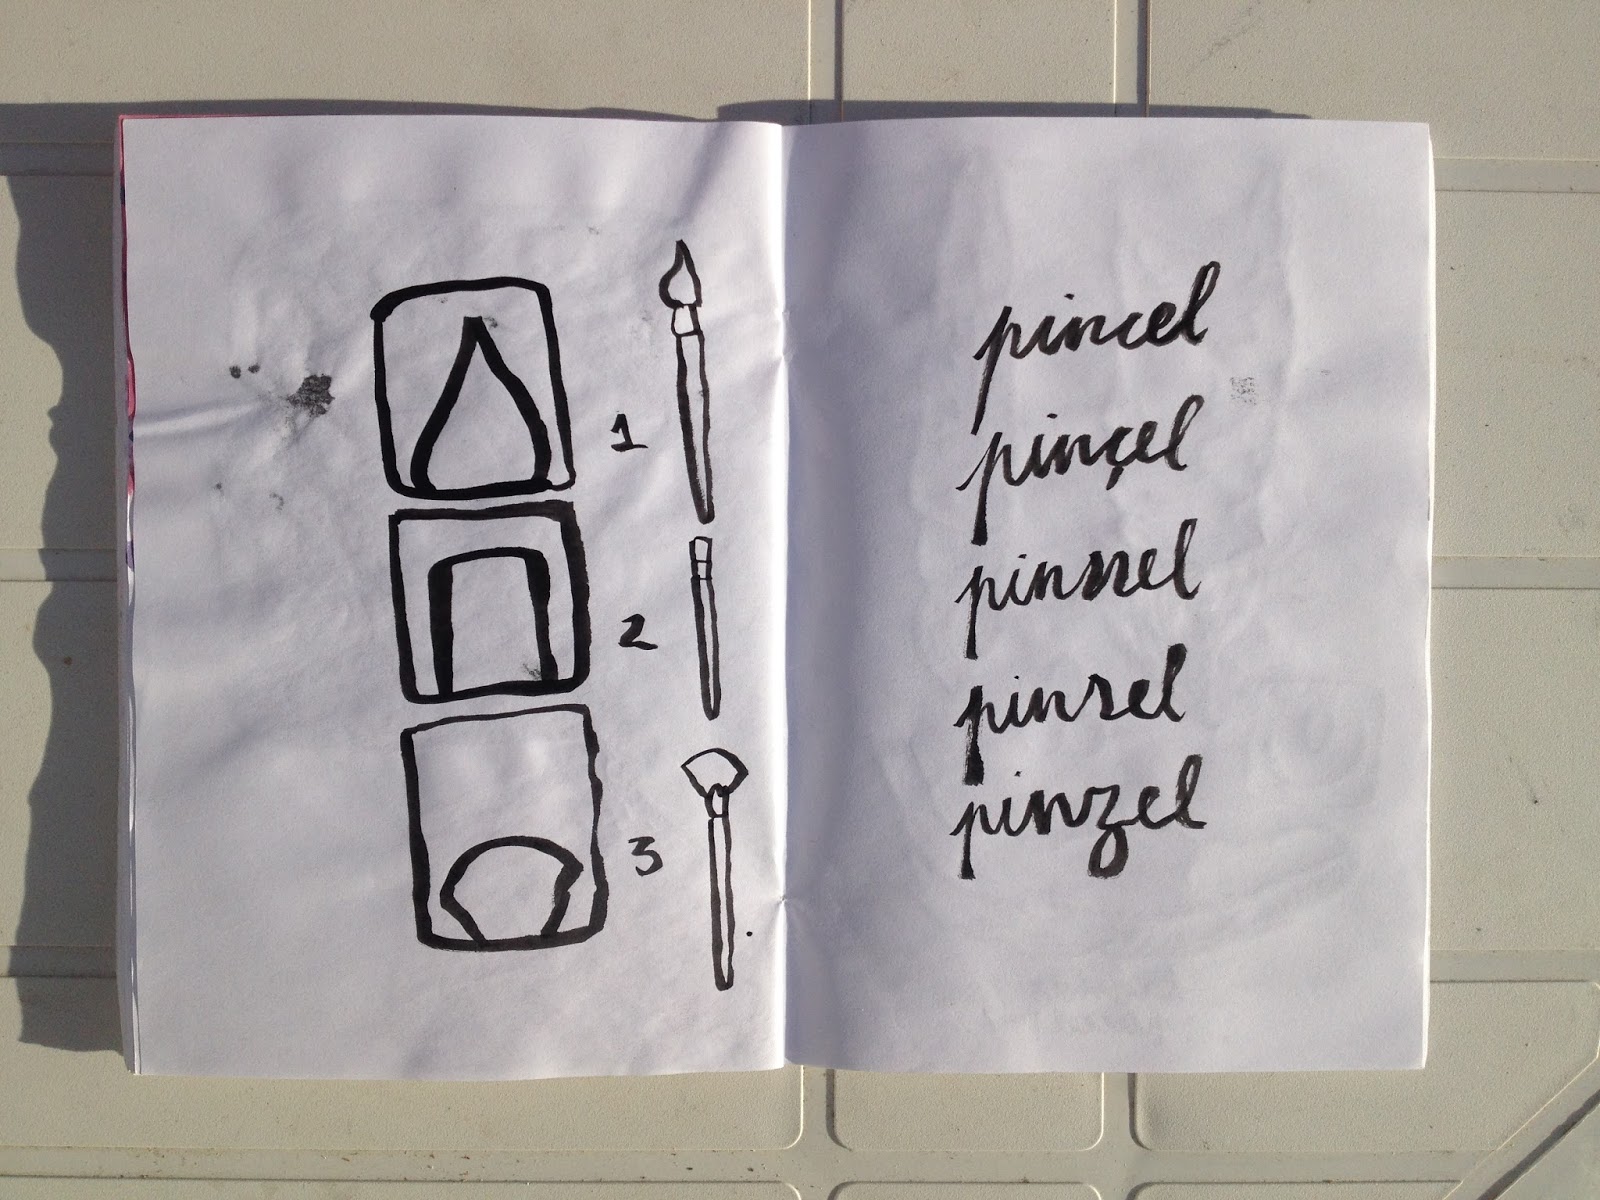 1
2
3
pincel
pinçel
pinssel
pinsel
pinzel